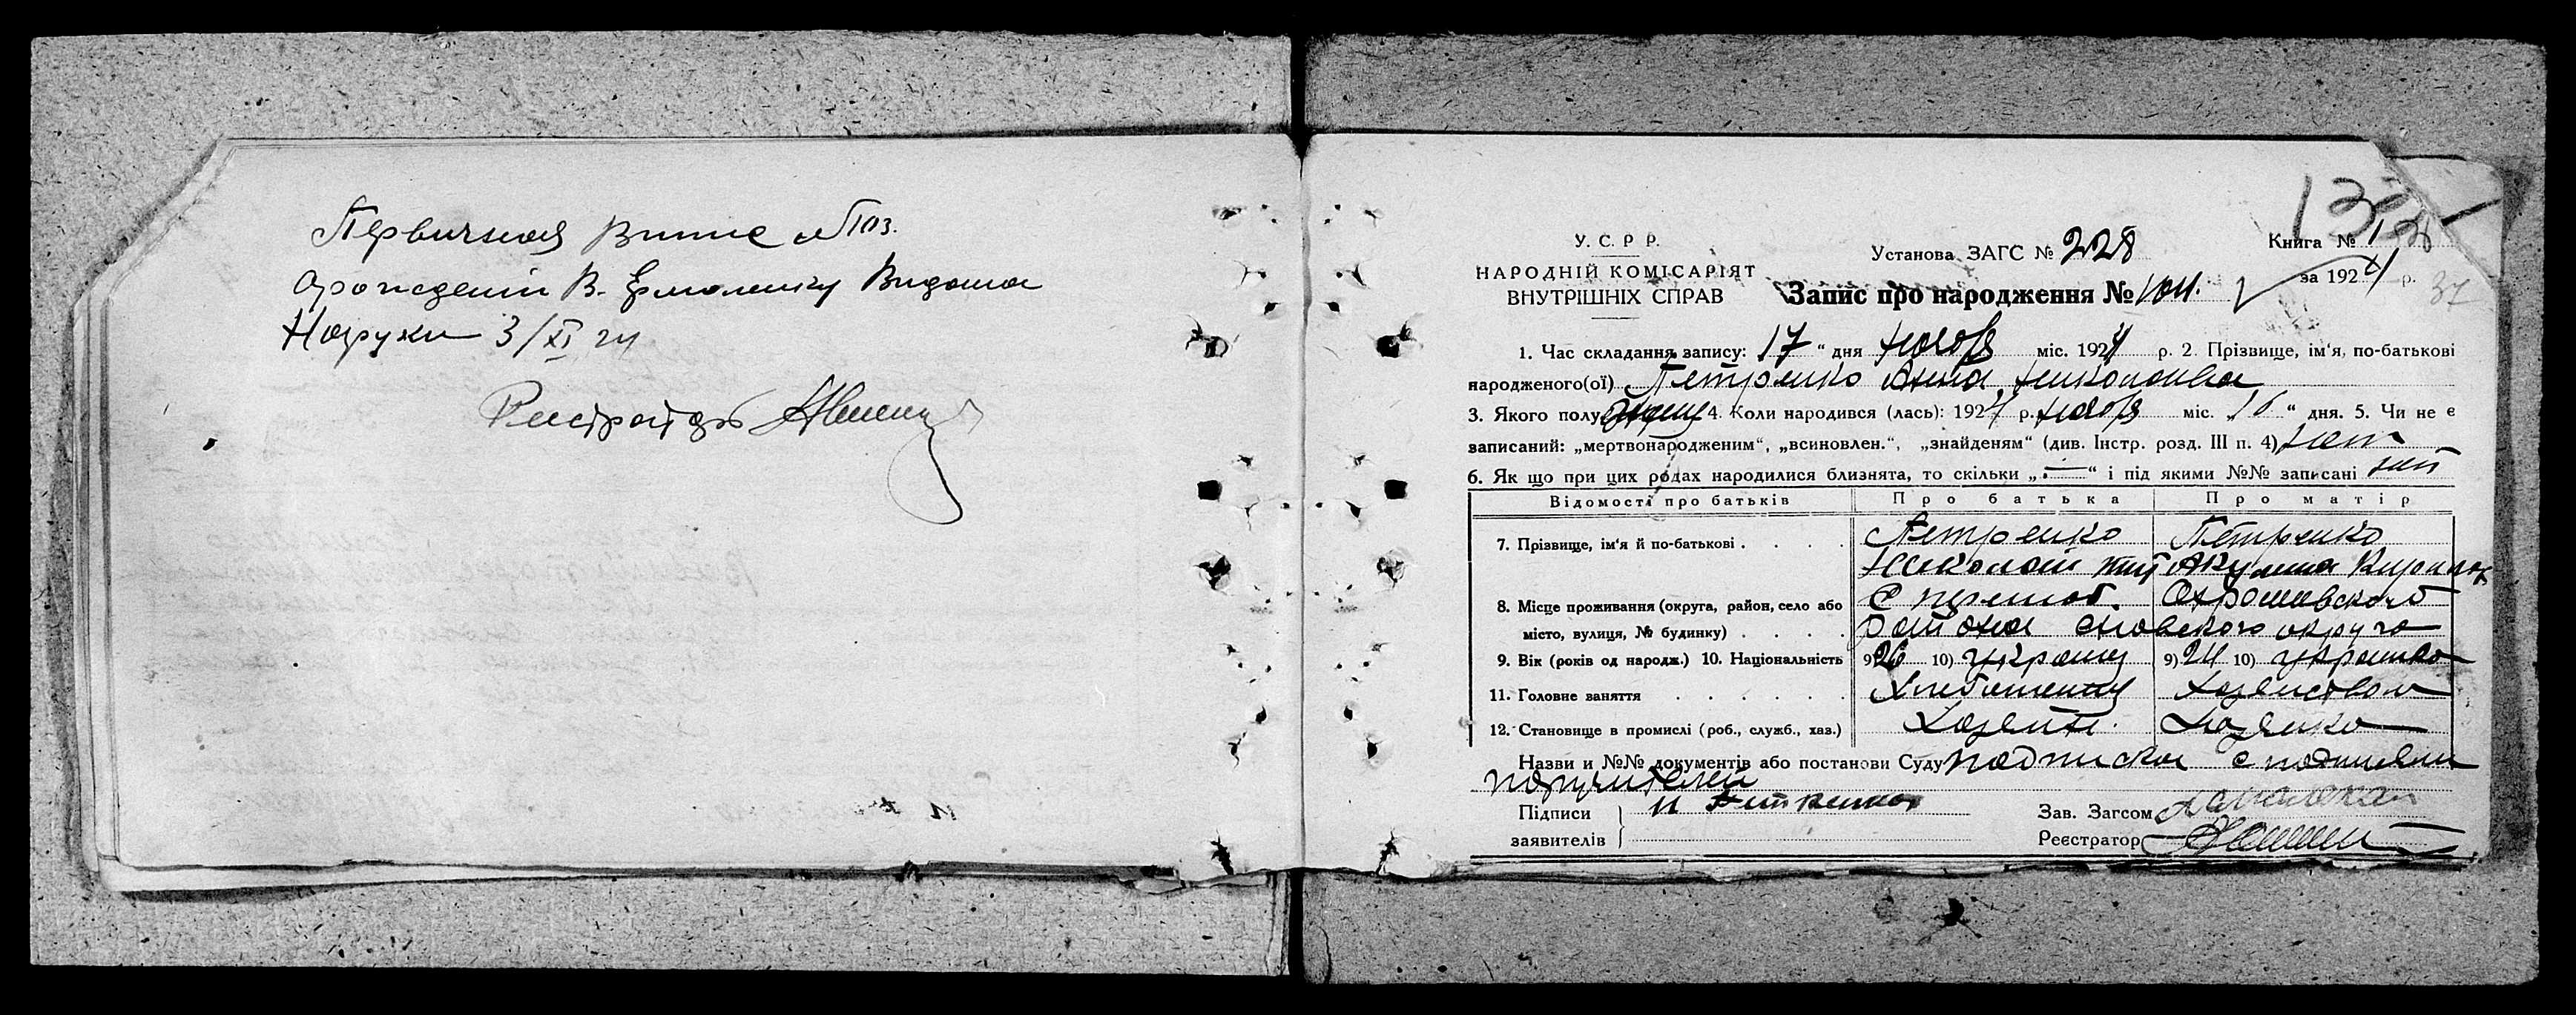 Первичная Выпис №103.
о рождении В. Ермоленку Выдана
На руки 3/XI 24
Регистратор
У. С. Р. Р.
НАРОДНІЙ КОМІСАРІЯТ
ВНУТРІШНІХ СПРАВ
Установа ЗАГС № 228
Книга № 1
за 1924 р.
37
Запис про народження № 104.
1. Час складання запису: 17 " дня ноября міс. 1924 р. 2. Прізвище, ім'я, по-батькові
народженого(ої) Петренко Анна Николаивна
3. Якого полу женщ 4. Коли народився (лась): 1924 р. ноября міс. „16 “ дня. 5. Чи не є
записаний: „мертвонародженим“, „всиновлен.“, „знайденям“ (див. Інстр. розд. III п. 4) нет
6. Як що при цих родах народилися близнята, то скільки „ — “ і під якими №№ записані нет
Відомості про батьків Про батька Про матір
7. Прізвище, ім'я й по-батькові . . . . Петренко Петренко
Николай Акулина
8. Місце проживання (округа, район, село або С
місто, вулиця, № будинку) . . . . района сновского округа
9. Вік (років од народж.) 10. Національність 9) 26 10) украинц 9) 24 10) украинка
11. Головне заняття . . . . . . Хлебопашец Хозяйством
12. Становище в промислі (роб., служб., хаз.) Хозяин Хозяйка
Назви и №№ документів або постанови Суду подписка с подписями
поручителей
Підписи Н Петренко
заявителів
Зав. Загсом
Реєстратор